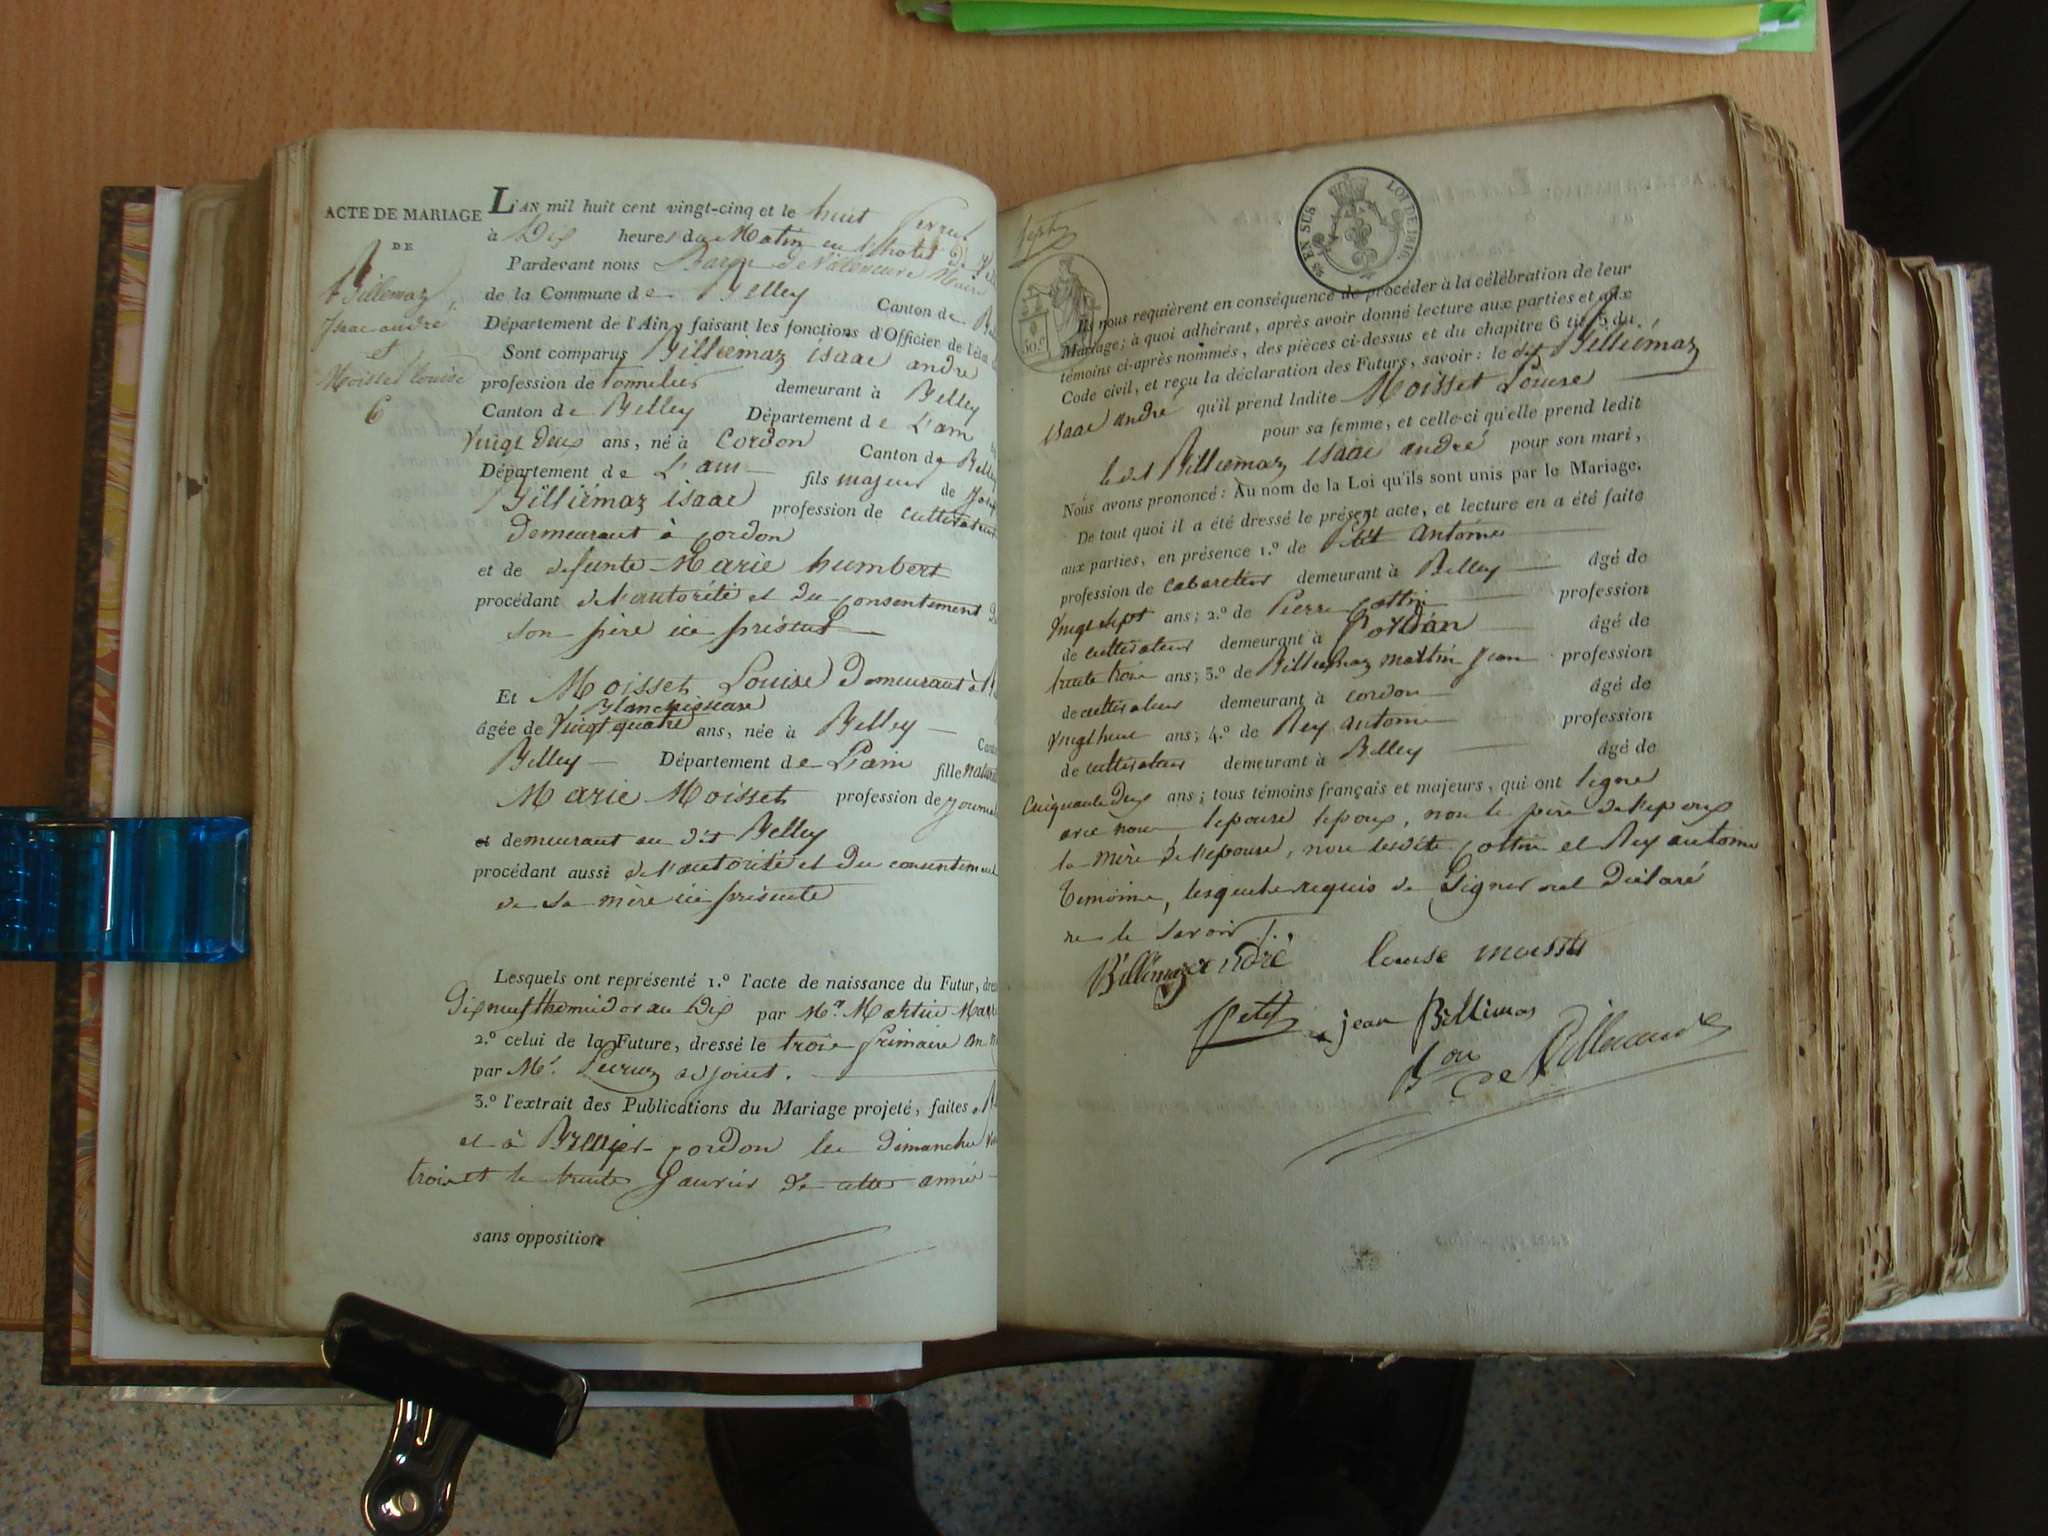 ACTE DE MARIAGE
DE
Billiemaz
Isaac andré
et
Moisset Louise
6
L'AN mil huit cent vingt-cinq et le huit fevrier
à Dix heures du Matin en l'hotel de
Pardevant nous Baron de Maire
de la Commune de Belley Canton de
Département de l'Ain, faisant les fonctions d'Officier de l'état
Sont comparus Billiémaz isaac andré
profession de tonnelier demeurant à Belley
Canton de Belley Département de L'ain
vingt deux ans, né à Cordon Canton de Belley
Département de L'ain fils majeur de
Billiémaz isaac profession de cultivateur
demeurant à Cordon
et de defunte Marie humbert
procédant de l'autorité et du Consentement de
son père ici présent
Et Moisset Louise demeurant à
Blanchisseuse
âgée de vingt quatre ans, née à Belley
Belley Département de L'ain fille
Marie Moisset profession de
et demeurant au dit Belley
procédant aussi de l'autorité et du consentement
de sa mère ici présente
Lesquels ont représenté 1.º l'acte de naissance du Futur,
Dix neuf thermidor an Dix par Mr. Martin
2.º celui de la Future, dressé le trois frimaire an
par Mr. adjoint.
3.º l'extrait des Publications du Mariage projeté, faites
et à Cordon les Dimanches
trois et le trente Janvier de cette année
sans opposition
LOI DE 1816
EN SUS
Ils nous requièrent en conséquence de procéder à la célébration de leur
Mariage; à quoi adhérant, après avoir donné lecture aux parties et aux
témoins ci-après nommés, des pièces ci-dessus et du chapitre 6 tit. 5 du
Code civil, et reçu la déclaration des Futurs, savoir: le dit Billiémaz
isaac andré qu'il prend ladite Moisset Louise
pour sa femme, et celle-ci qu'elle prend ledit
le dit Billiemaz isaac andré pour son mari,
Nous avons prononcé: Au nom de la Loi qu'ils sont unis par le Mariage.
De tout quoi il a été dressé le présent acte, et lecture en a été faite
aux parties, en présence 1.º de Petit antoine
profession de cabaretier demeurant à Belley âgé de
vingt sept ans; 2.º de Pierre Cottin profession
de cultivateur demeurant à Cordon âgé de
trente trois ans; 3.º de Billiemaz Jean profession
de cultivateur demeurant à cordon âgé de
ans; 4.º de Rey antoine profession
de cultivateur demeurant à Belley âgé de
cinquante deux ans; tous témoins français et majeurs, qui ont signé
avec nous l'epouse l'epoux, non le père de l'epoux
la mère de l'epouse, non lesdits Cottin et Rey antoine
temoins, lesquels requis de signer ont déclaré
ne le savoir
Billiémaz andré louise moisset
Petit jean Billiemas
Bon de